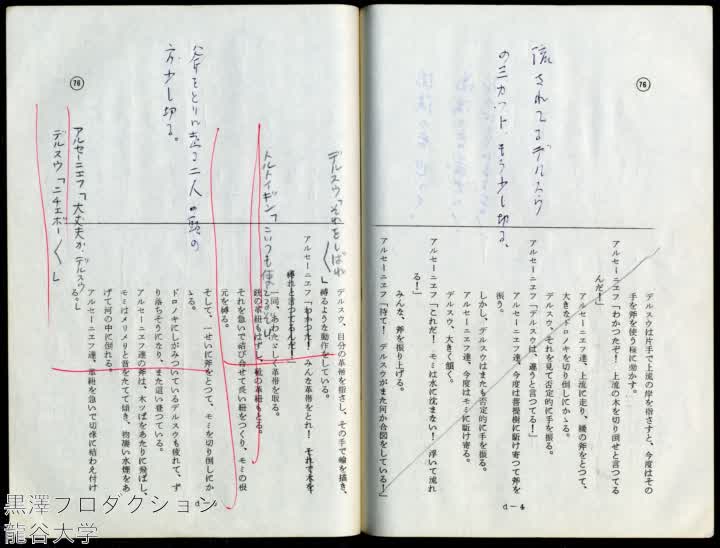 流されてるデルスウ
の三カット、もう少し切る。
76
デルスウは片手で上流の岸を指さすと、今度はその
手を斧を使う様に動かす。
アルセーニエフ「わかつたぞ! 上流の木を切り倒せと言つてる
んだ!」
アルセーニエフ達、上流に走り、腰の斧をとつて、
大きなドロノキを切り倒しにかゝる。
デルスウ、それを見て否定的に手を振る。
アルセーニエフ「デルスウは、違うと言つてる!」
アルセーニエフ達、今度は菩提樹に駈け寄つて斧を
振う。
しかし、デルスウはまたも否定的に手を振る。
アルセーニエフ達、今度はモミに駈け寄る。
デルスウ、大きく頷く。
アルセーニエフ「これだ! モミは水に沈まない! 浮いて流れ
る!」
みんな、斧を振り上げる。
アルセーニエフ「待て! デルスウがまた何か合図をしている!」
d-4
76
斧をとりに走る二人の頭の
方少し切る。
デルスウ「それをしばれ
〱」
トルトイギン「こいつも使
アルセーニエフ「大丈夫か デルスウ
デルスウ「ニチェボー〱」
デルスウ、自分の革帯を指さし、その手で輪を描き、
縛るような動作をしている。
アルセーニエフ「わかつた! みんな革帯をとれ! それで木を
縛れと言つてるんだ!」
一同、あわたゞしく革帯を取る。
銃の革紐もはずし、靴の革紐もとる。
それを急いで結び合せて長い紐をつくり、モミの根
元を縛る。
そして、一せいに斧をとつて、モミを切り倒しにか
ゝる。
ドロノキにしがみついているデルスウも疲れて、ず
り落ちそうになり、また這い登つている。
アルセーニエフ達の斧は、木ツぱをあたりに飛ばし、
モミはメリメリと音をたてて傾き、物凄い水煙をあ
げて河の中に倒れる。
アルセーニエフ達、革紐を急いで切株に結わえ付け
る。
d-
黒澤プロダクション
龍谷大学